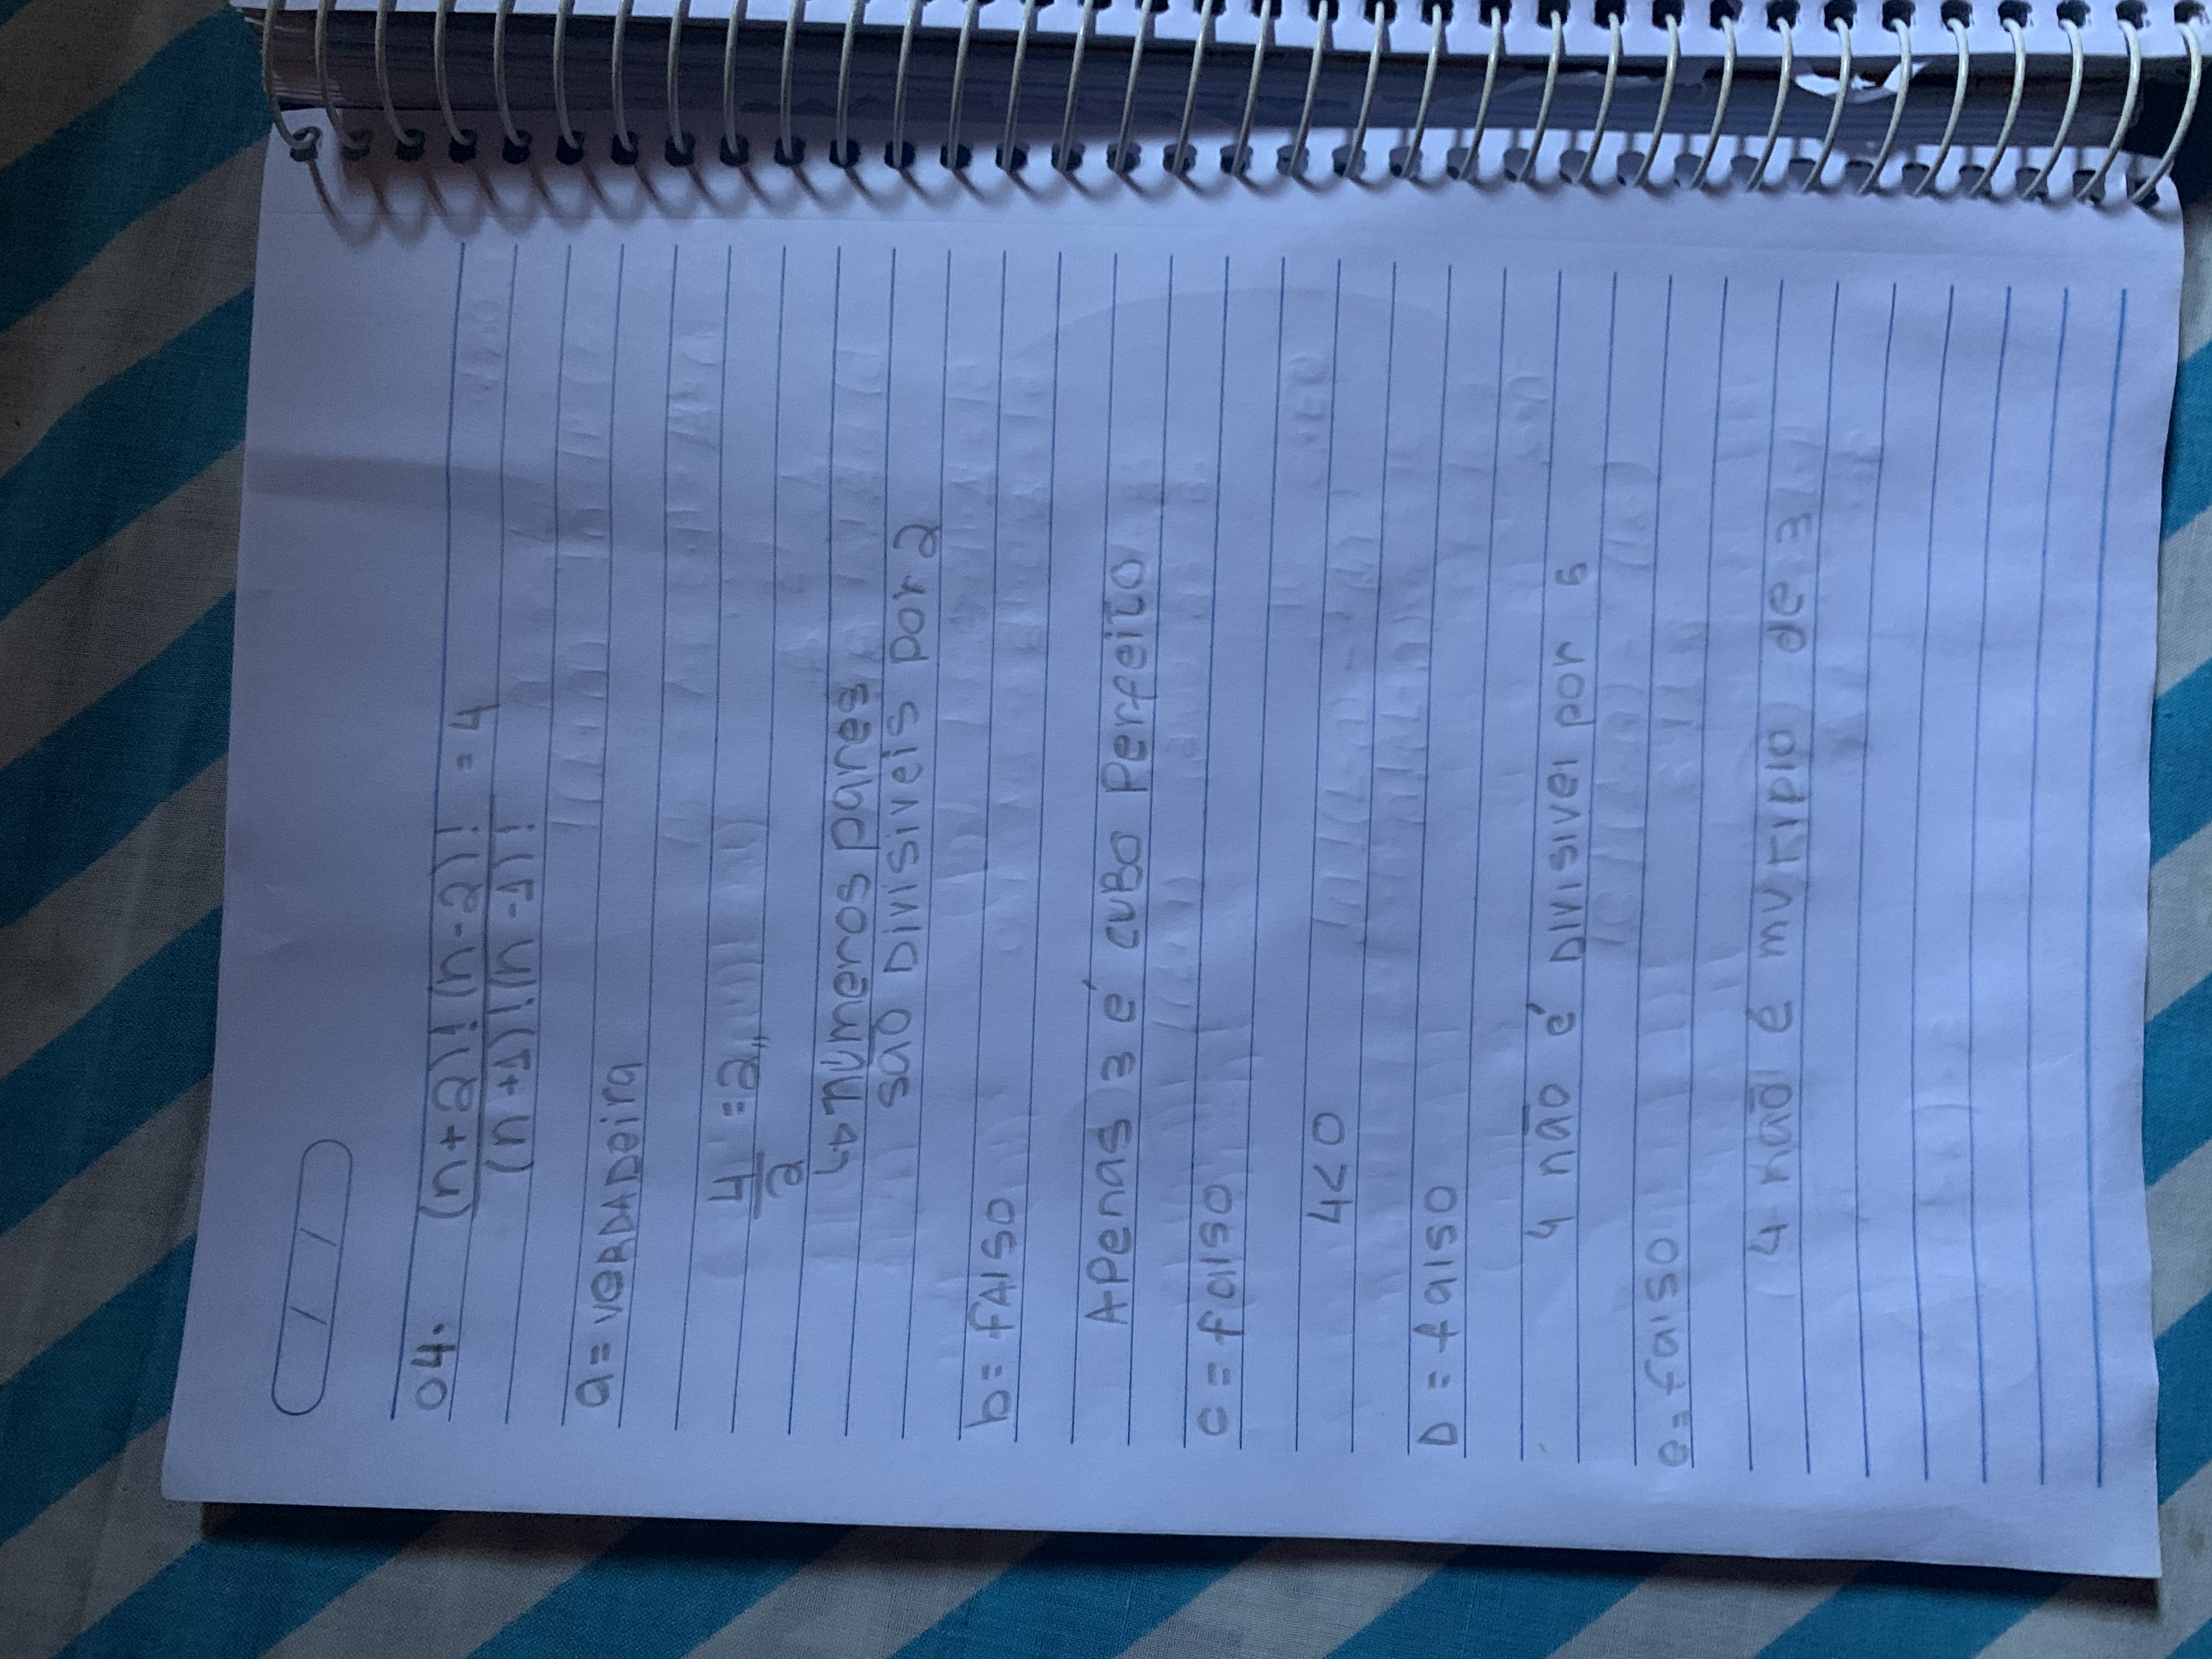 04. (n+2)!(n-2)! = 4
(n+1)!(n-1)!
a = VERDADeira
4 = 2,,
2
↳ números pares
são Divisiveis por 2
b = fAlso
Apenas 3 é cubo Perfeito
c = falso
4<0
D = falso
4 não é Divisivel por 5
e = falso
4 não é mutiplo de 3